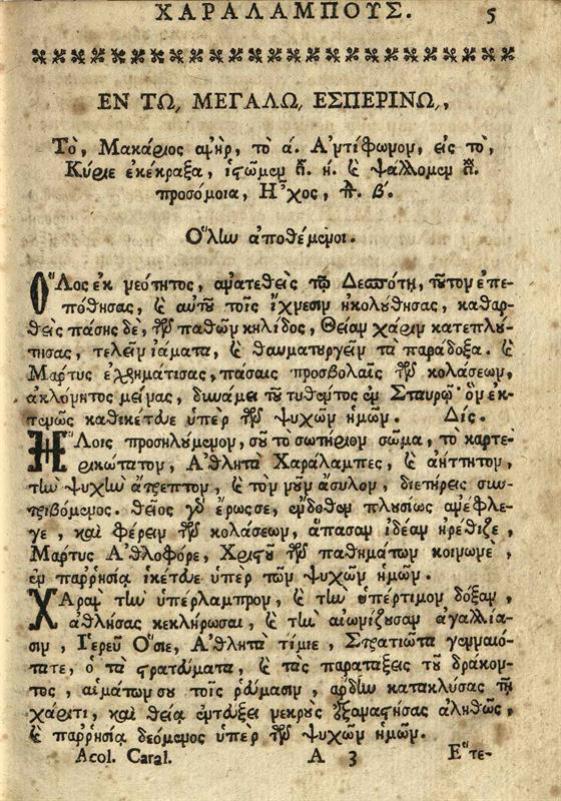 ΧΑΡΑΛΑΜΠΟΥΣ. 5
ΕΝ ΤΩ, ΜΕΓΑΛΩ, ΕΣΠΕΡΙΝΩ,,
Τὸ, Μακάριος ἀνὴρ, τὸ ά. Ἀντίφωνον, εἰς τὸ,
Κύριε ἐκέκραξα, ἱστῶμεν ή. καὶ ψάλλομεν
προσόμοια, Ἦχος, β΄.
Ὅλην ἀποθέμενοι.
Ὅλος ἐκ νεότητος, ἀνατεθεὶς τῷ Δεσπότῃ, τοῦτον ἐπε-
πόθησας, καὶ αὐτοῦ τοῖς ἴχνεσιν ἠκολούθησας, καθαρ-
θεὶς πάσης δὲ, τῶν παθῶν κηλίδος, Θείαν χάριν κατεπλού-
τησας, τελεῖν ἰάματα, καὶ θαυματουργεῖν τὰ παράδοξα. καὶ
Μάρτυς ἐχρημάτισας, πάσαις προσβολαῖς τῶν κολάσεων,
ἀκλόνητος μείνας, δυνάμει τοῦ τυθέντος ἐν Σταυρῷ· ὃν ἐκ-
τενῶς καθικέτευε ὑπὲρ τῶν ψυχῶν ἡμῶν. Δίς.
Ἥλοις προσηλούμενον, σοῦ τὸ σωτήριον σῶμα, τὸ καρτε-
ρικώτατον, Ἀθλητὰ Χαράλαμπες, καὶ ἀήττητον,
τὴν ψυχὴν ἄτρεπτον, καὶ τὸν νοῦν ἄσυλον, διετήρεις συν-
τριβόμενος. θεῖος γὰρ ἔρωσσε, ἔνδοθεν πλουσίως ἀνέφλε-
γε, καὶ φέρειν τῶν κολάσεων, ἅπασαν ἰδέαν ἠρέθιζε,
Μάρτυς Ἀθλοφόρε, Χριστοῦ τῶν παθημάτων κοινωνὲ,
ἐν παῤῥησίᾳ ἱκέτευε ὑπὲρ τῶν ψυχῶν ἡμῶν.
Χαρὰν τὴν ὑπέρλαμπρον, καὶ τὴν ὑπέρτιμον δόξαν,
ἀθλήσας κεκλήρωσαι, καὶ τὴν αἰωνίζουσαν ἀγαλλία-
σιν, Ἱερεῦ Ὅσιε, Ἀθλητὰ τίμιε, Στρατιῶτα γενναιό-
τατε, ὁ τὰ στρατεύματα, καὶ τὰς παρατάξεις τοῦ δράκον-
τος, αἱμάτων σου τοῖς ῥεύμασιν, ἄρδην κατακλύσας τῇ
χάριτι, καὶ θείᾳ ἐντεύξει νεκροὺς ἐξαναστήσας ἀληθῶς,
καὶ παῤῥησίᾳ δεόμενος ὑπὲρ τῶν ψυχῶν ἡμῶν.
Acol. Caral. A 3 Ἔτε-